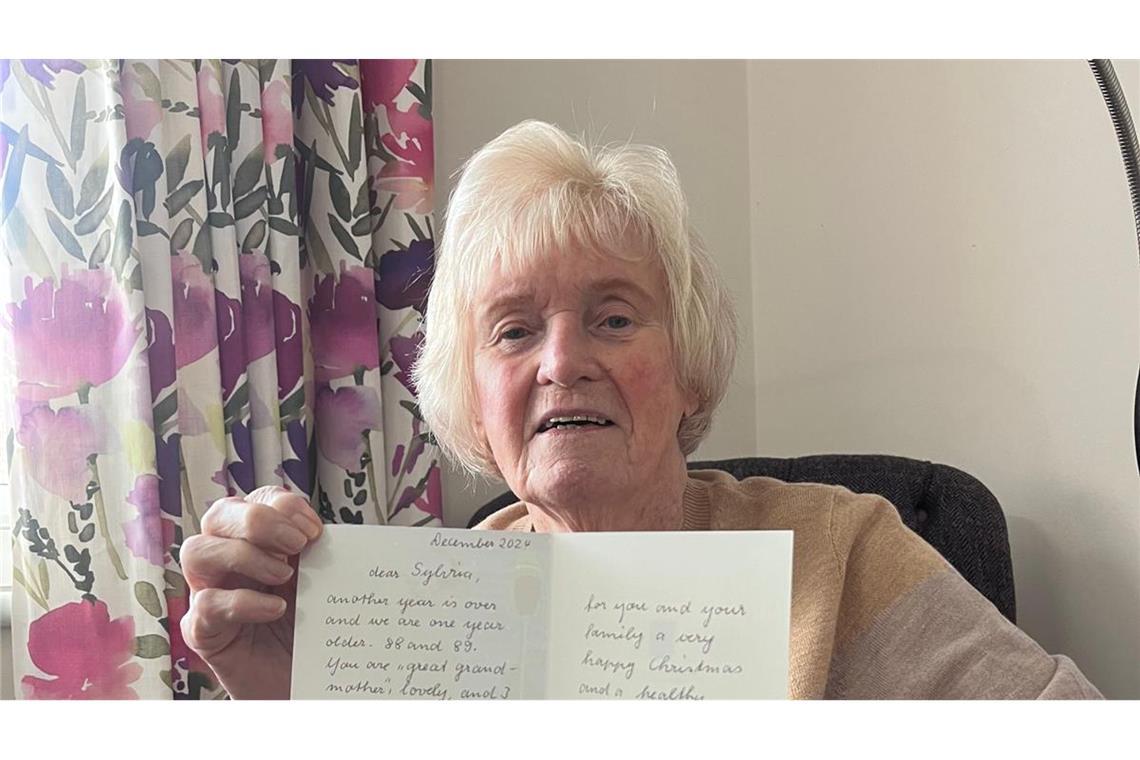 December 2024
dear Sylvia,
another year is over
and we are one year
older. 88 and 89.
You are „great grand-
mother", lovely, and I
for you and your
family a very
happy Christmas
and a healthy